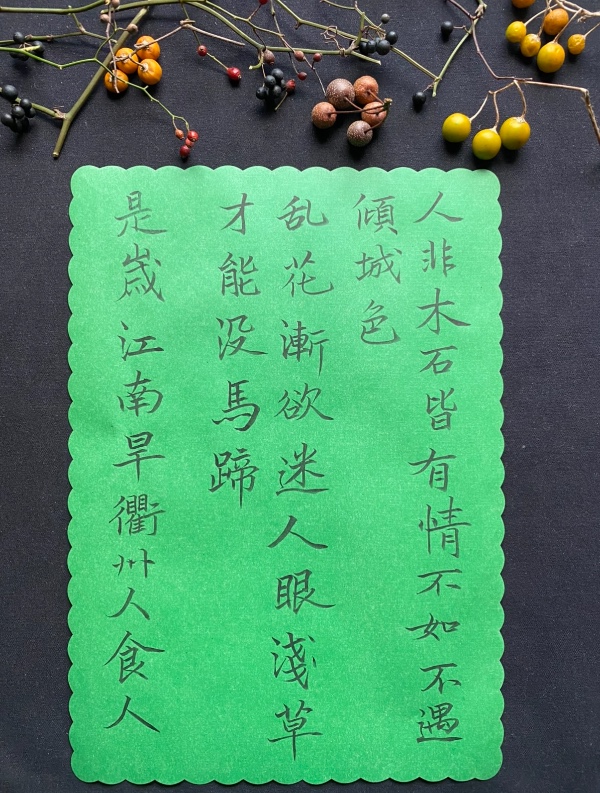 人非木石皆有情不如不遇
傾城色
乱花漸欲迷人眼淺草
才能没馬蹄
是歲江南旱衢州人食人